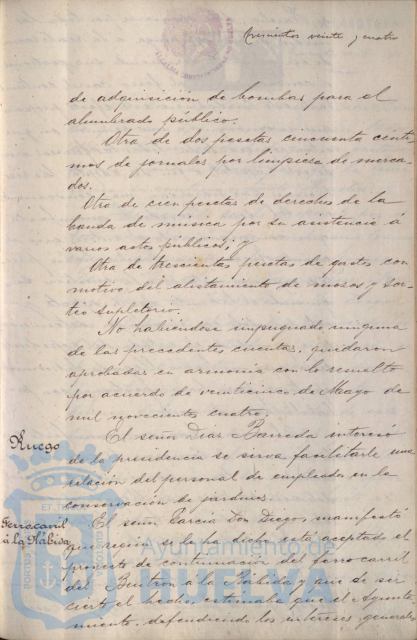 Trescientos veinte y cuatro
de adquisición de bombas para el
alumbrado público.
Otra de dos pesetas cincuenta cénti-
mos de jornales por limpieza de merca-
dos.
Otra de cien pesetas de derechos de la
banda de música por su asistencia á
varios actos públicos; y
Otra de trescientas pesetas de gastos con
motivo del alistamiento de mozos y sor-
teo supletorio.
No habiéndose impugnado ninguna
de las precedentes cuentas, quedaron
aprobadas en armonía con lo resuelto
por acuerdo de veinticinco de Mayo de
mil novecientos cuatro.
Ruego
El señor Díaz Barreda interesó
de la presidencia se sirva facilitarle una
relación del personal de empleados en la
conservación de jardines.
Ferrocarril
á la Rábida
El señor García Don Diego, manifestó
que según se le ha dicho está aceptado el
proyecto de continuación del ferrocarril
del Buitrón á la Rábida y que de ser
cierto el hecho, estimaba que el Ayunta-
miento, defendiendo los intereses generale
Ayuntamiento de
HUELVA